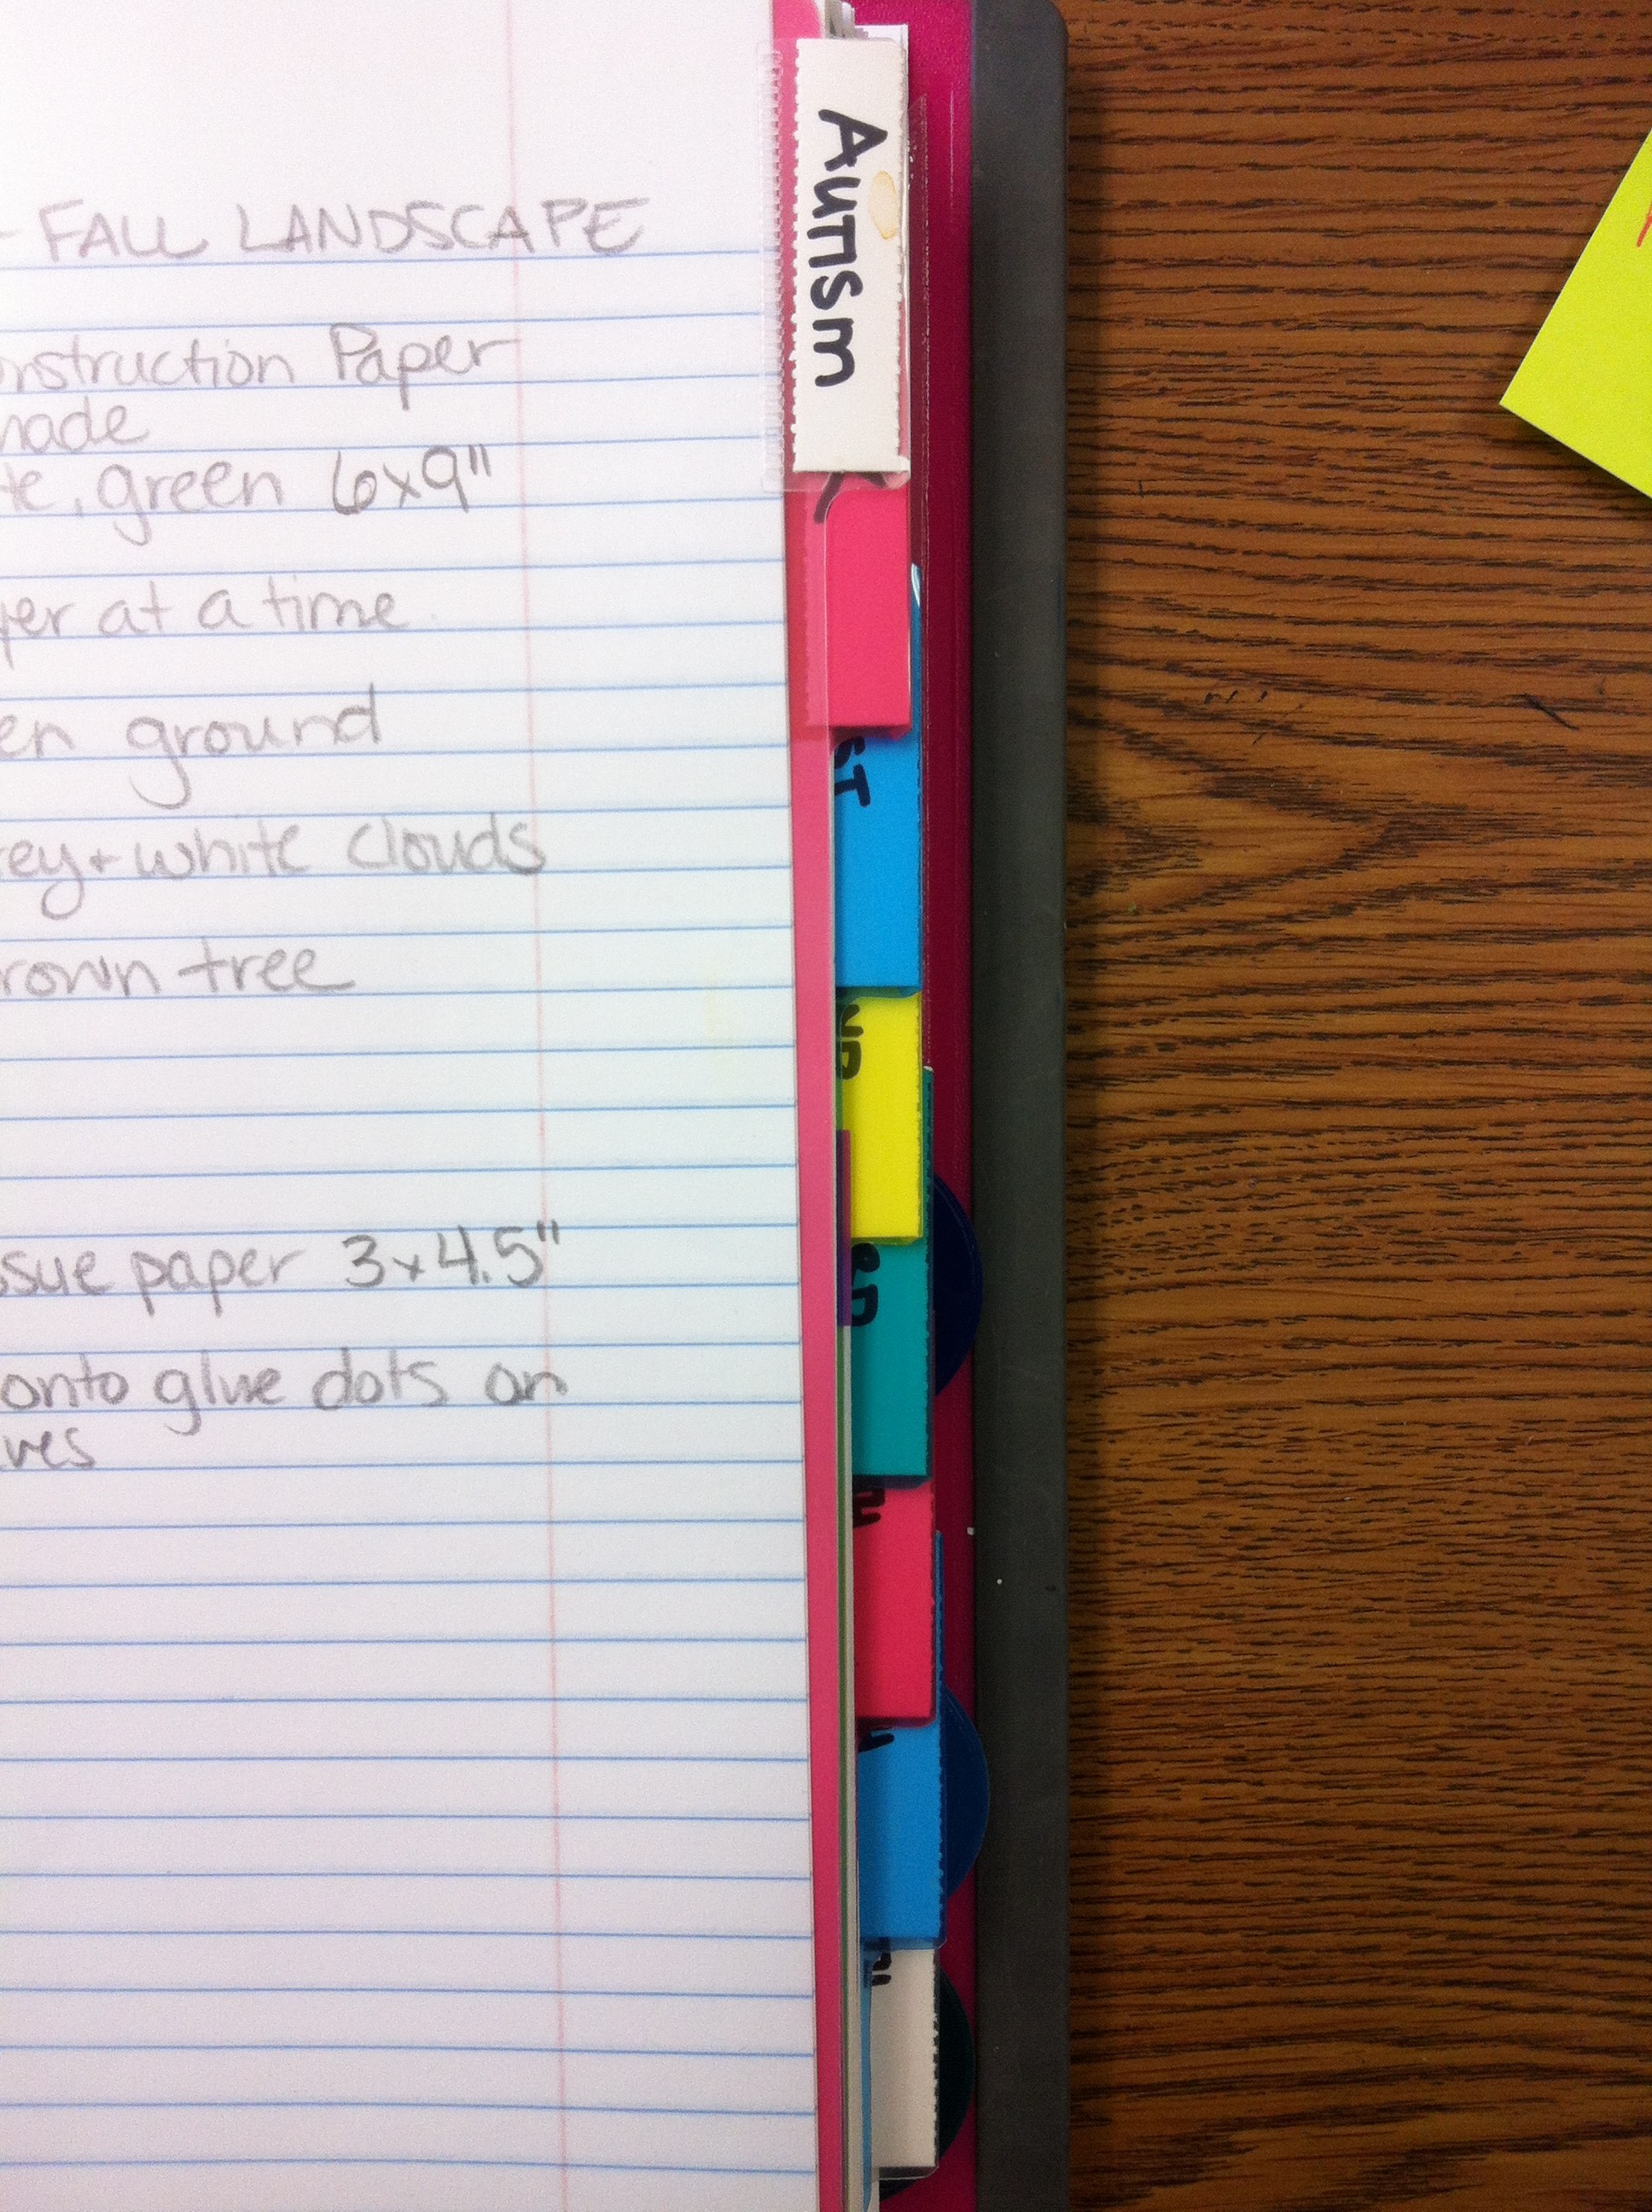 - FALL LANDSCAPE
onstruction Paper
made
te, green 6x9"
yer at a time
en ground
rey + white clouds
rown tree
ssue paper 3x4.5"
onto glue dots on
ves
Autism
K
ST
ND
RD
TH
TH
TH